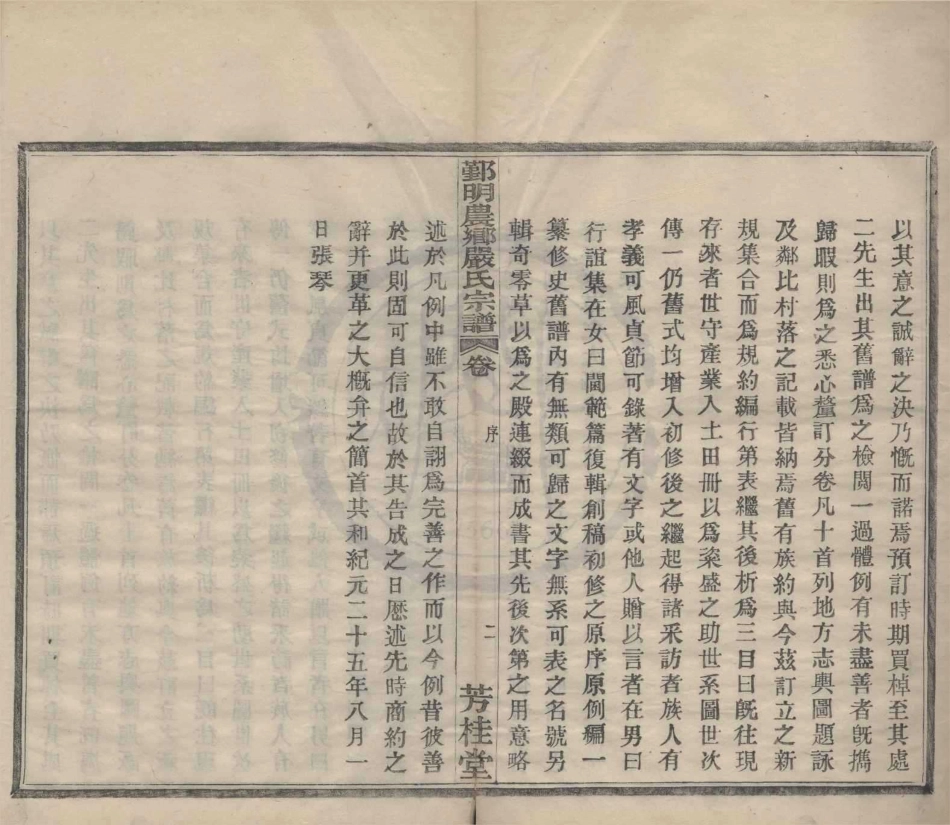 以其意之誠辭之決乃慨而諾焉預訂時期買棹至其處
二先生出其舊譜爲之檢閱一過體例有未盡善者旣擕
歸暇則爲之悉心釐訂分卷凡十首列地方志輿圖題詠
及鄰比村落之記載皆納焉舊有族約與今茲訂立之新
規集合而爲規約編行第表繼其後析爲三目曰旣往現
存來者世守產業入土田冊以爲粢盛之助世系圖世次
傳一仍舊式均增入初修後之繼起得諸采訪者族人有
孝義可風貞節可錄著有文字或他人贈以言者在男曰
行誼集在女曰閫範篇復輯創稿初修之原序原例編一
纂修史舊譜內有無類可歸之文字無系可表之名號另
輯奇零草以爲之殿連綴而成書其先後次第之用意略
鄞明農鄉嚴氏宗譜 卷 序 二 芳桂堂
述於凡例中雖不敢自詡爲完善之作而以今例昔彼善
於此則固可自信也故於其告成之日歷述先時商約之
辭并更革之大概弁之簡首其和紀元二十五年八月一
日張琴